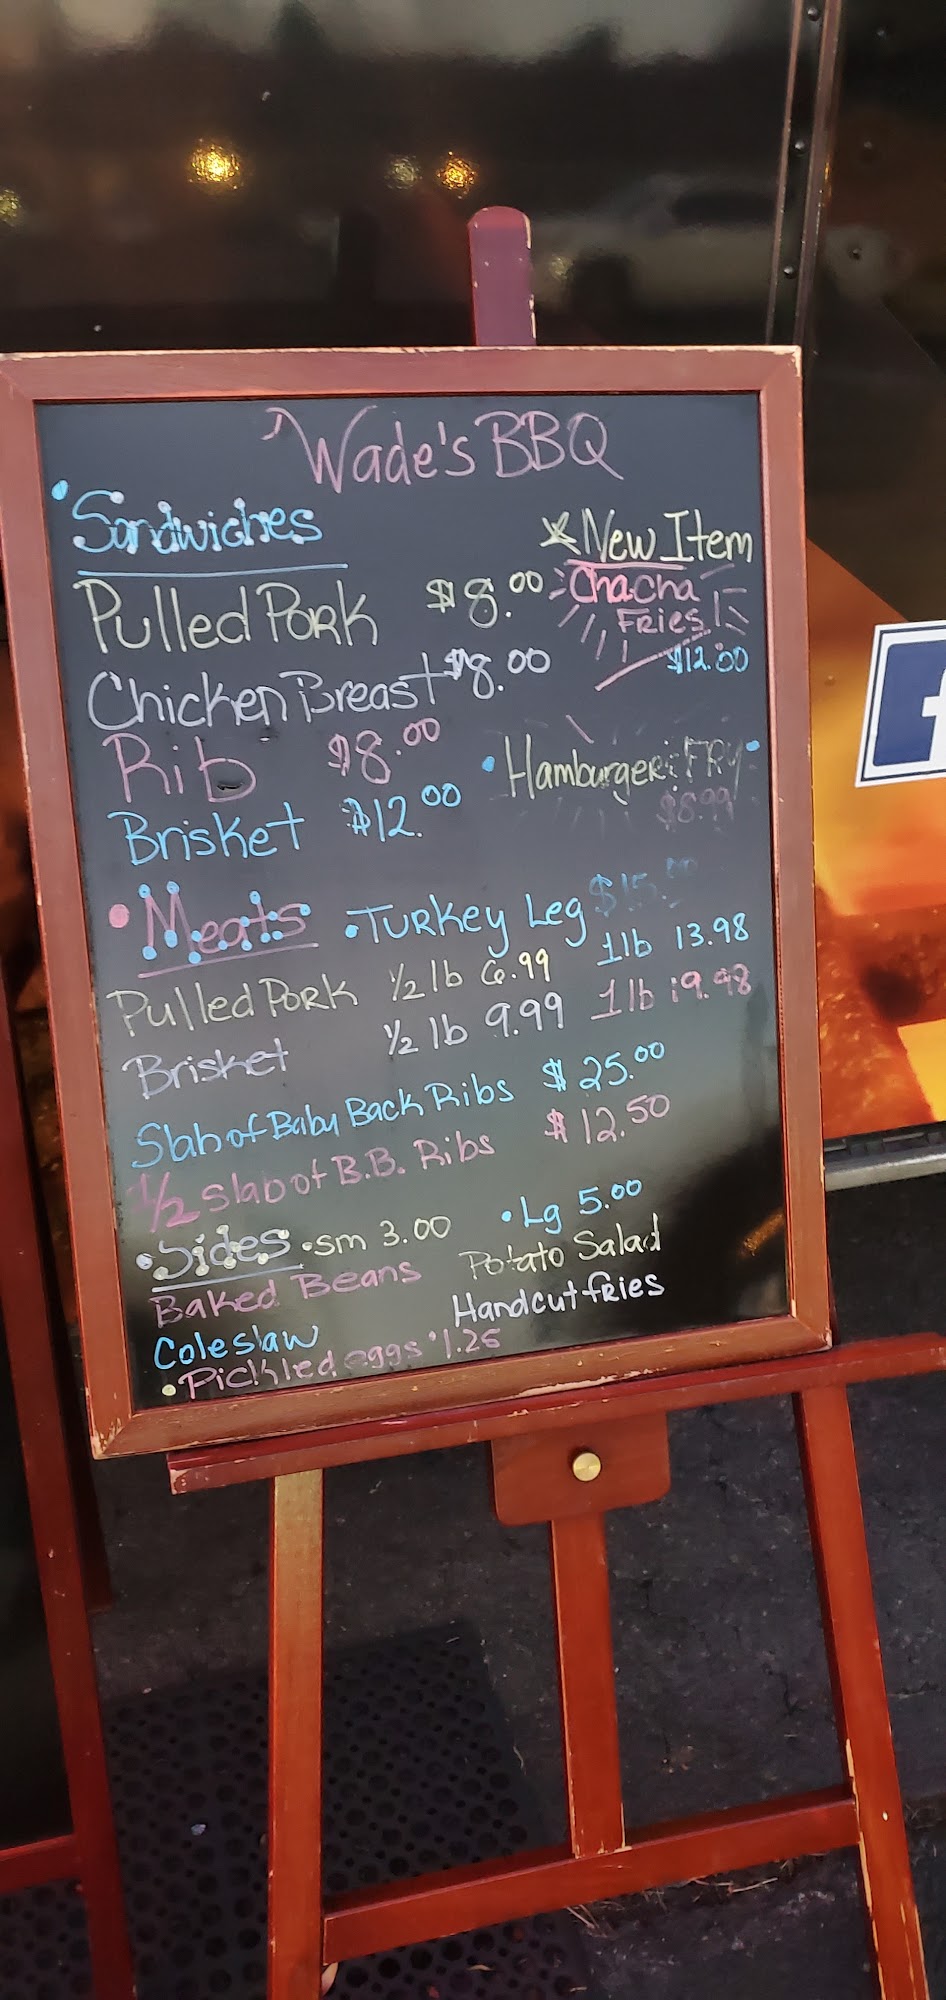 Wade's BBQ
Sandwiches
*New Item
Pulled Pork $8.00
Cha Cha
Fries
$12.00
Chicken Breast $8.00
Rib $8.00
• Hamburger & FRY •
$8.99
Brisket $12.00
• Meats • Turkey Leg $15.00
Pulled Pork 1/2 lb 6.99 1lb 13.98
Brisket 1/2 lb 9.99 1lb 19.98
Slab of Baby Back Ribs $25.00
1/2 Slab of B.B. Ribs $12.50
• Sides • sm 3.00 • Lg 5.00
Baked Beans Potato Salad
Coleslaw Handcut fries
• Pickled eggs 1.25
f